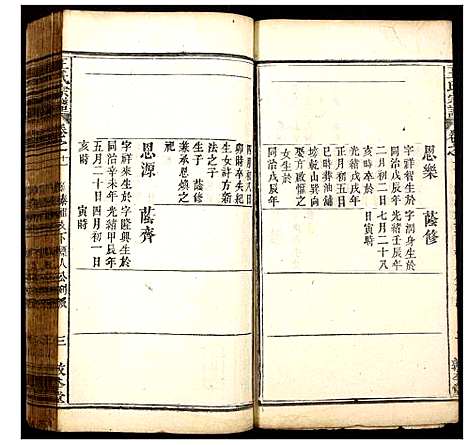 王氏宗譜
卷之十
恩樂
字祥和生於
同治戊辰年
二月初二日
亥時卒於
光緒戊戌年
正月初五日
巳時葬油舖
坊乾山巽向
女生於
同治戊辰年
蔭修
字潤身生於
光緒壬辰年
七月二十八
日寅時
卯時卒失紀
生女許方新
法之子
生子 蔭修
兼承恩煥之
祀
恩源
字祥來生於
同治辛未年
五月二十日
亥時
蔭齊
字隆興生於
光緒甲辰年
四月初一日
寅時
王氏宗譜
卷之十
三
敦本堂